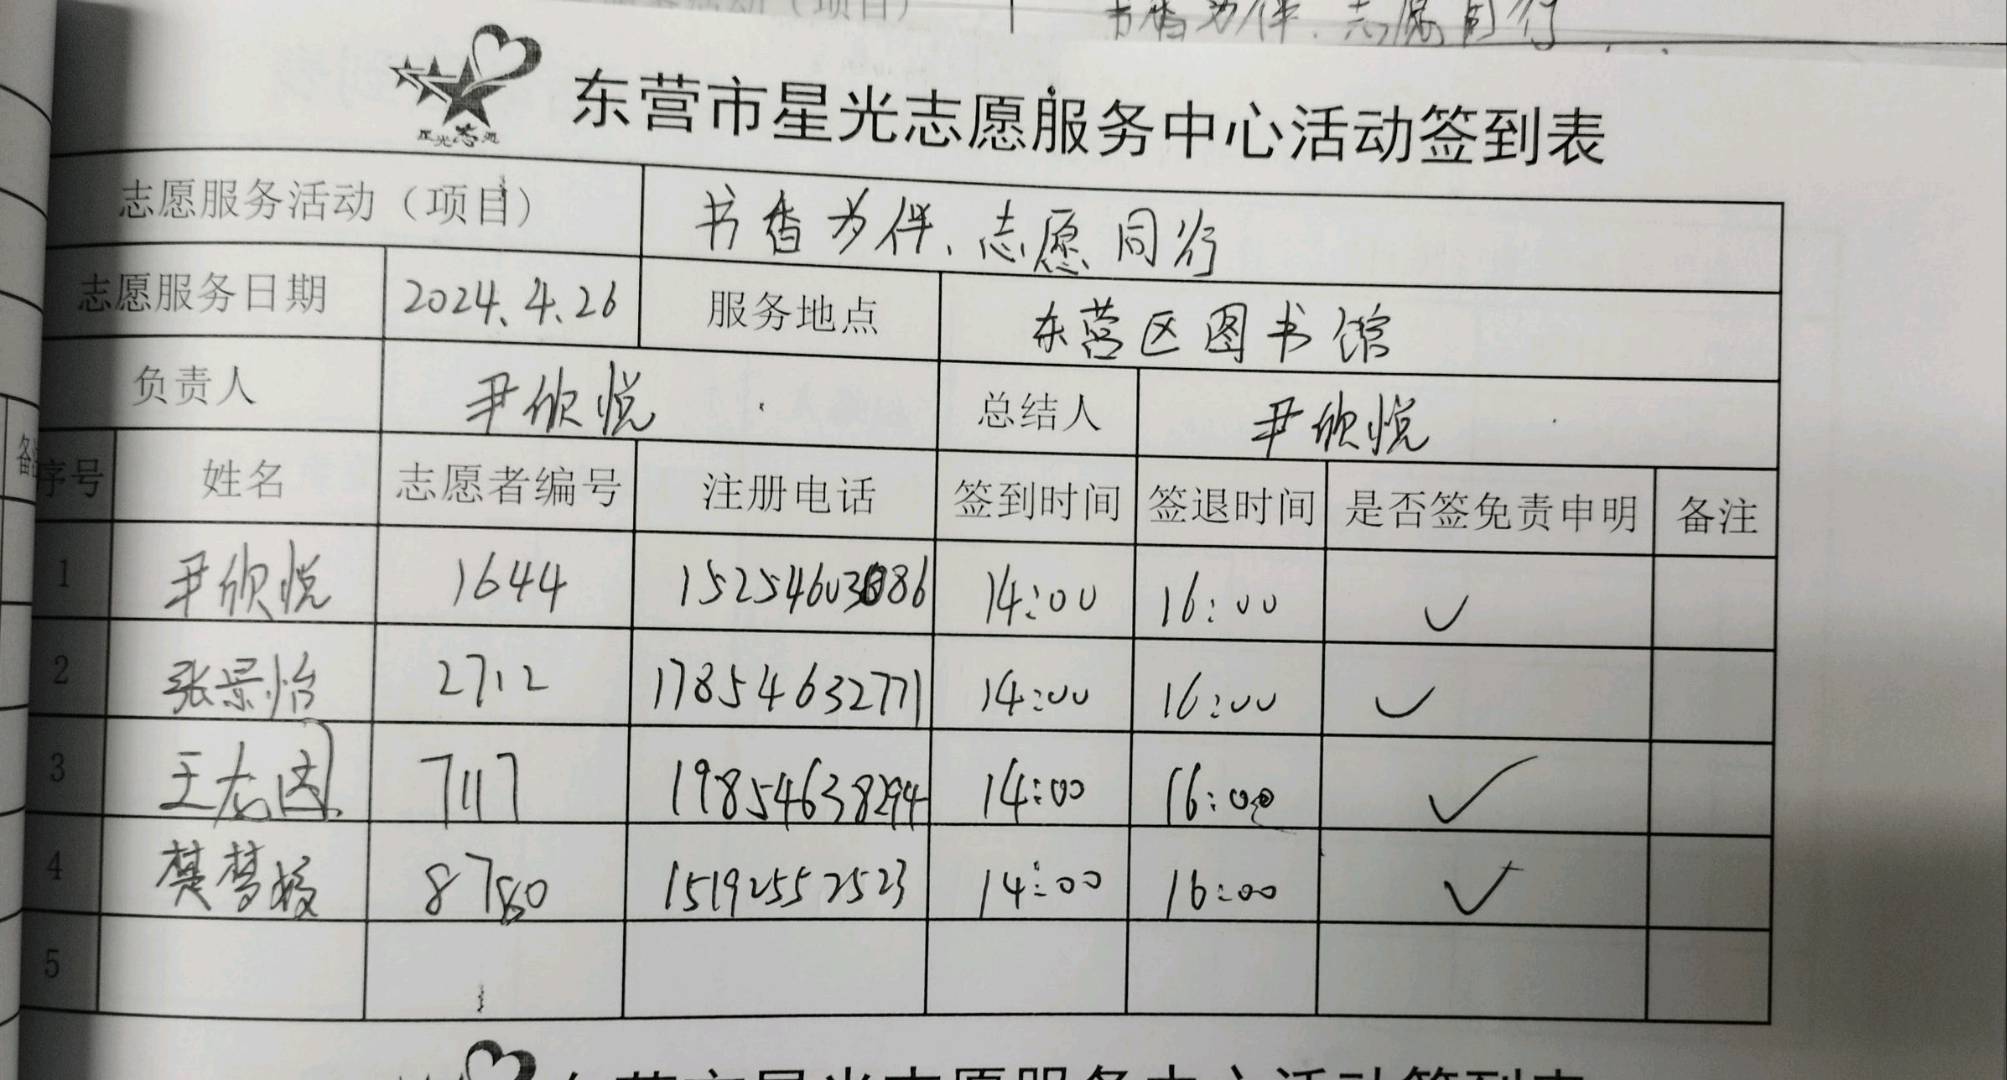 书香为伴、志愿同行
星光志愿
东营市星光志愿服务中心活动签到表
志愿服务活动（项目） 书香为伴、志愿同行
志愿服务日期 2024.4.26 服务地点 东营区图书馆
负责人 尹欣悦 总结人 尹欣悦
序号 姓名 志愿者编号 注册电话 签到时间 签退时间 是否签免责申明 备注
1 尹欣悦 1644 15254603086 14:00 16:00 ✓
2 张景怡 2712 17854632771 14:00 16:00 ✓
3 7117 19854638294 14:00 16:00 ✓
4 8780 15192552523 14:00 16:00 ✓
5
东营市星光志愿服务中心活动签到表